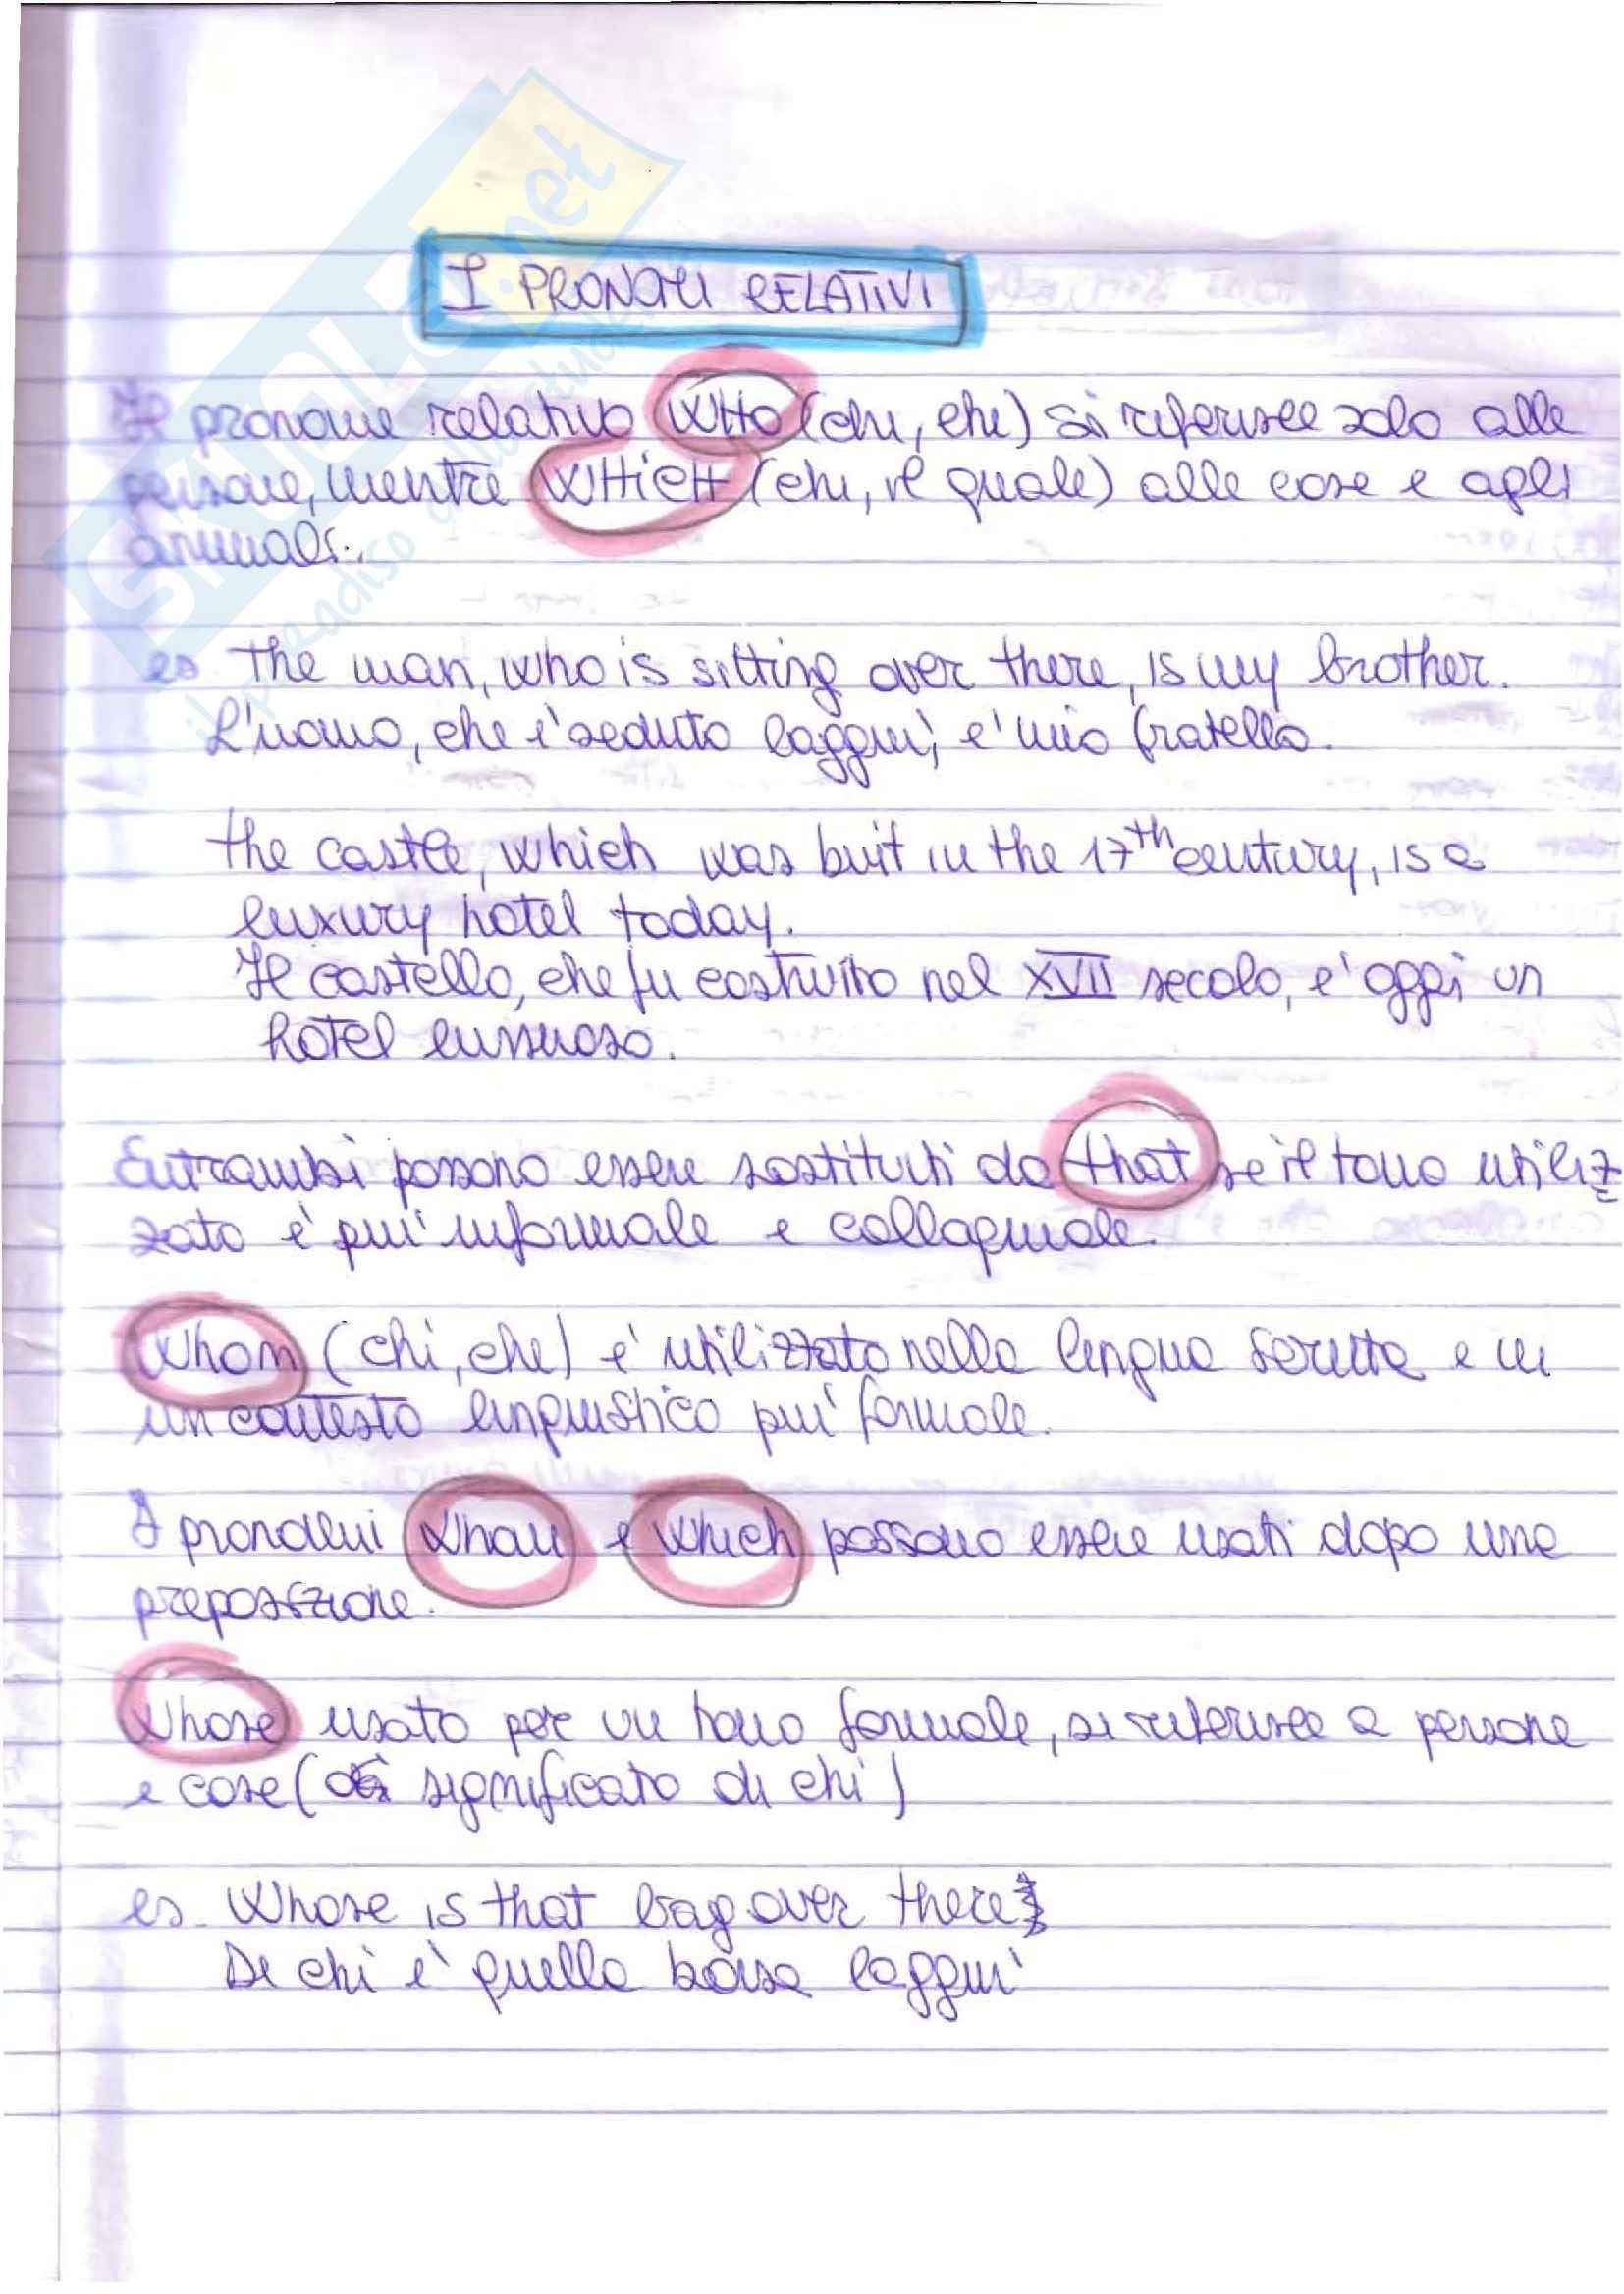 I PRONOMI RELATIVI
Il pronome relativo WHO (chi, che) si riferisce solo alle
persone, mentre WHICH (chi, il quale) alle cose e agli
animali.
es. the man, who is sitting over there, is my brother.
L'uomo, che è seduto laggiù, è mio fratello.
the castle, which was buit in the 17th century, is a
luxury hotel today.
Il castello, che fu costruito nel XVII secolo, è oggi un
hotel lussuoso.
Entrambi possono essere sostituiti da that se il tono utiliz
zato è più informale e colloquiale.
Whom (chi, che) è utilizzato nella lingua scritta e in
un contesto linguistico più formale.
I pronomi whom e which possono essere usati dopo una
preposizione.
Whose usato per un tono formale, si riferisce a persone
e cose ( significato di chi)
es. Whose is that bag over there?
Di chi è quella borsa laggiù
SKUOLA.net
il paradiso dello studente